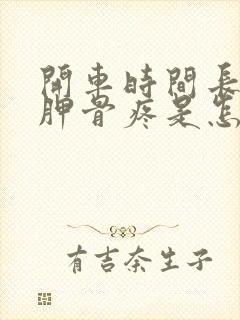 開車時間長
胛骨疼是怎
有吉奈生子